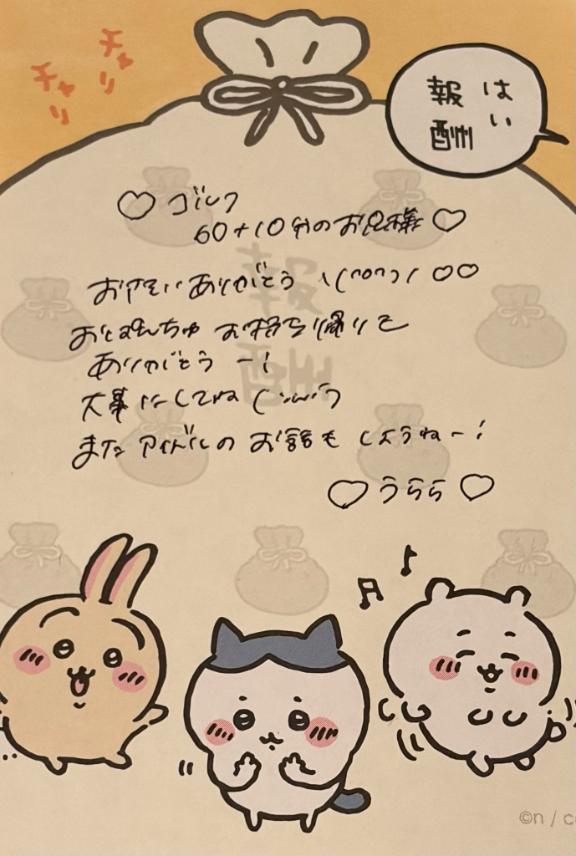 チャリ
チャリ
はい
報酬
♡ ゴルフ
60+10分のお兄様 ♡
ありがとう ♡♡
おぱんちゅ お持ち帰りを
ありがとうー!
大事にしてね
また アイドルの お話も しようねー!
♡ うらら ♡
報酬
©n / c